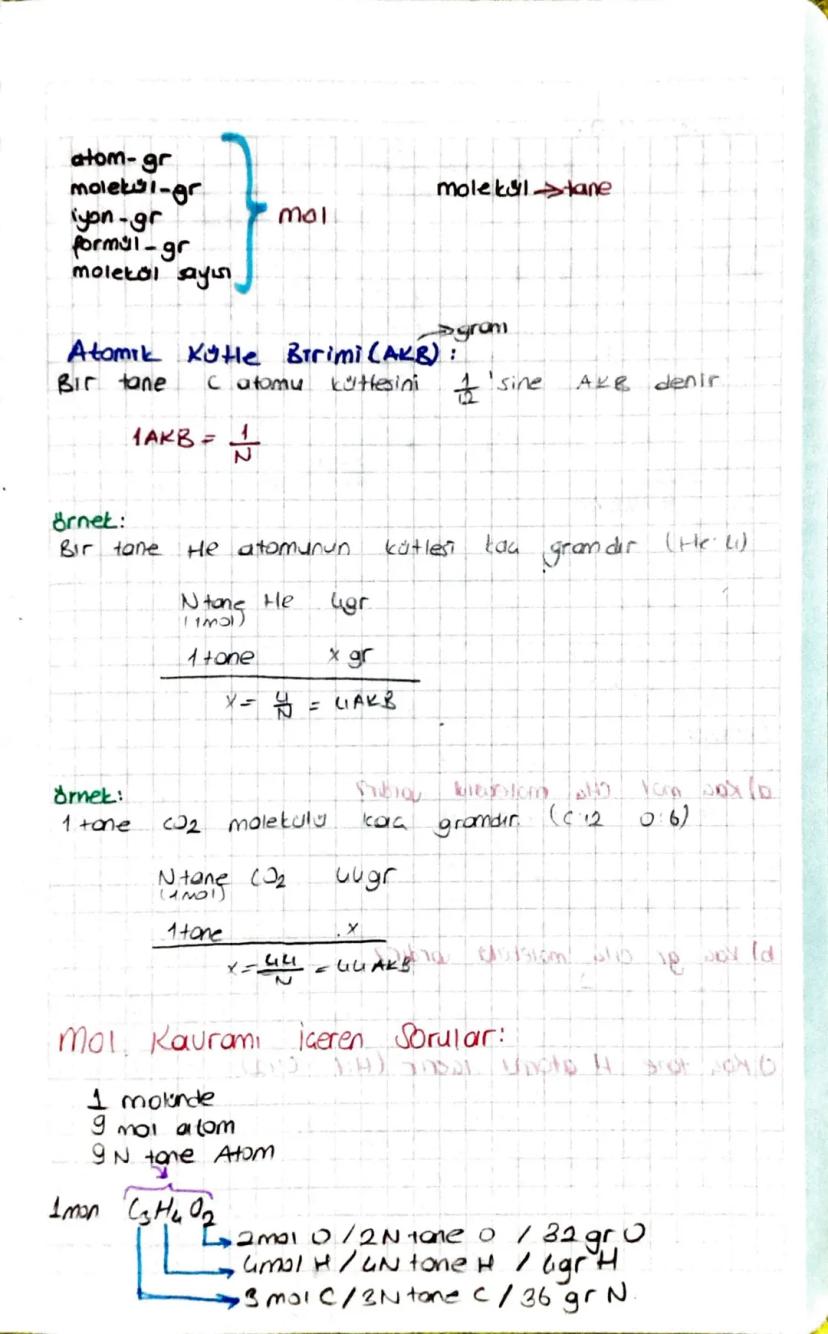 atom-gr
molekül-gr
iyon-gr
formül-gr
molekül sayısı
mol
molekül → tane
→ gram
Atomik Kütle Birimi (AKB) :
Bir tane C atomu kütlesini 1/12 'sine AKB denir
1AKB = 1/N
örnek:
Bir tane He atomunun kütlesi kaç gramdır (He: 4)
N tane He 4gr
(1mol)
1 tane x gr
x = 4/N = 4AKB
örnek:
1 tane CO2 molekülü kaç gramdır. (C:12 O:6)
N tane CO2 44gr
(1mol)
1 tane .x
x = 44/N = 44AKB
Mol Kavramı içeren Sorular:
1 molünde
9 mol atom
9N tane Atom
1mon C3H4O2
→ 2mol O / 2N tane O / 32 gr O
→ 4mol H / 4N tane H / 4gr H
→ 3 mol C / 3N tane C / 36 gr N